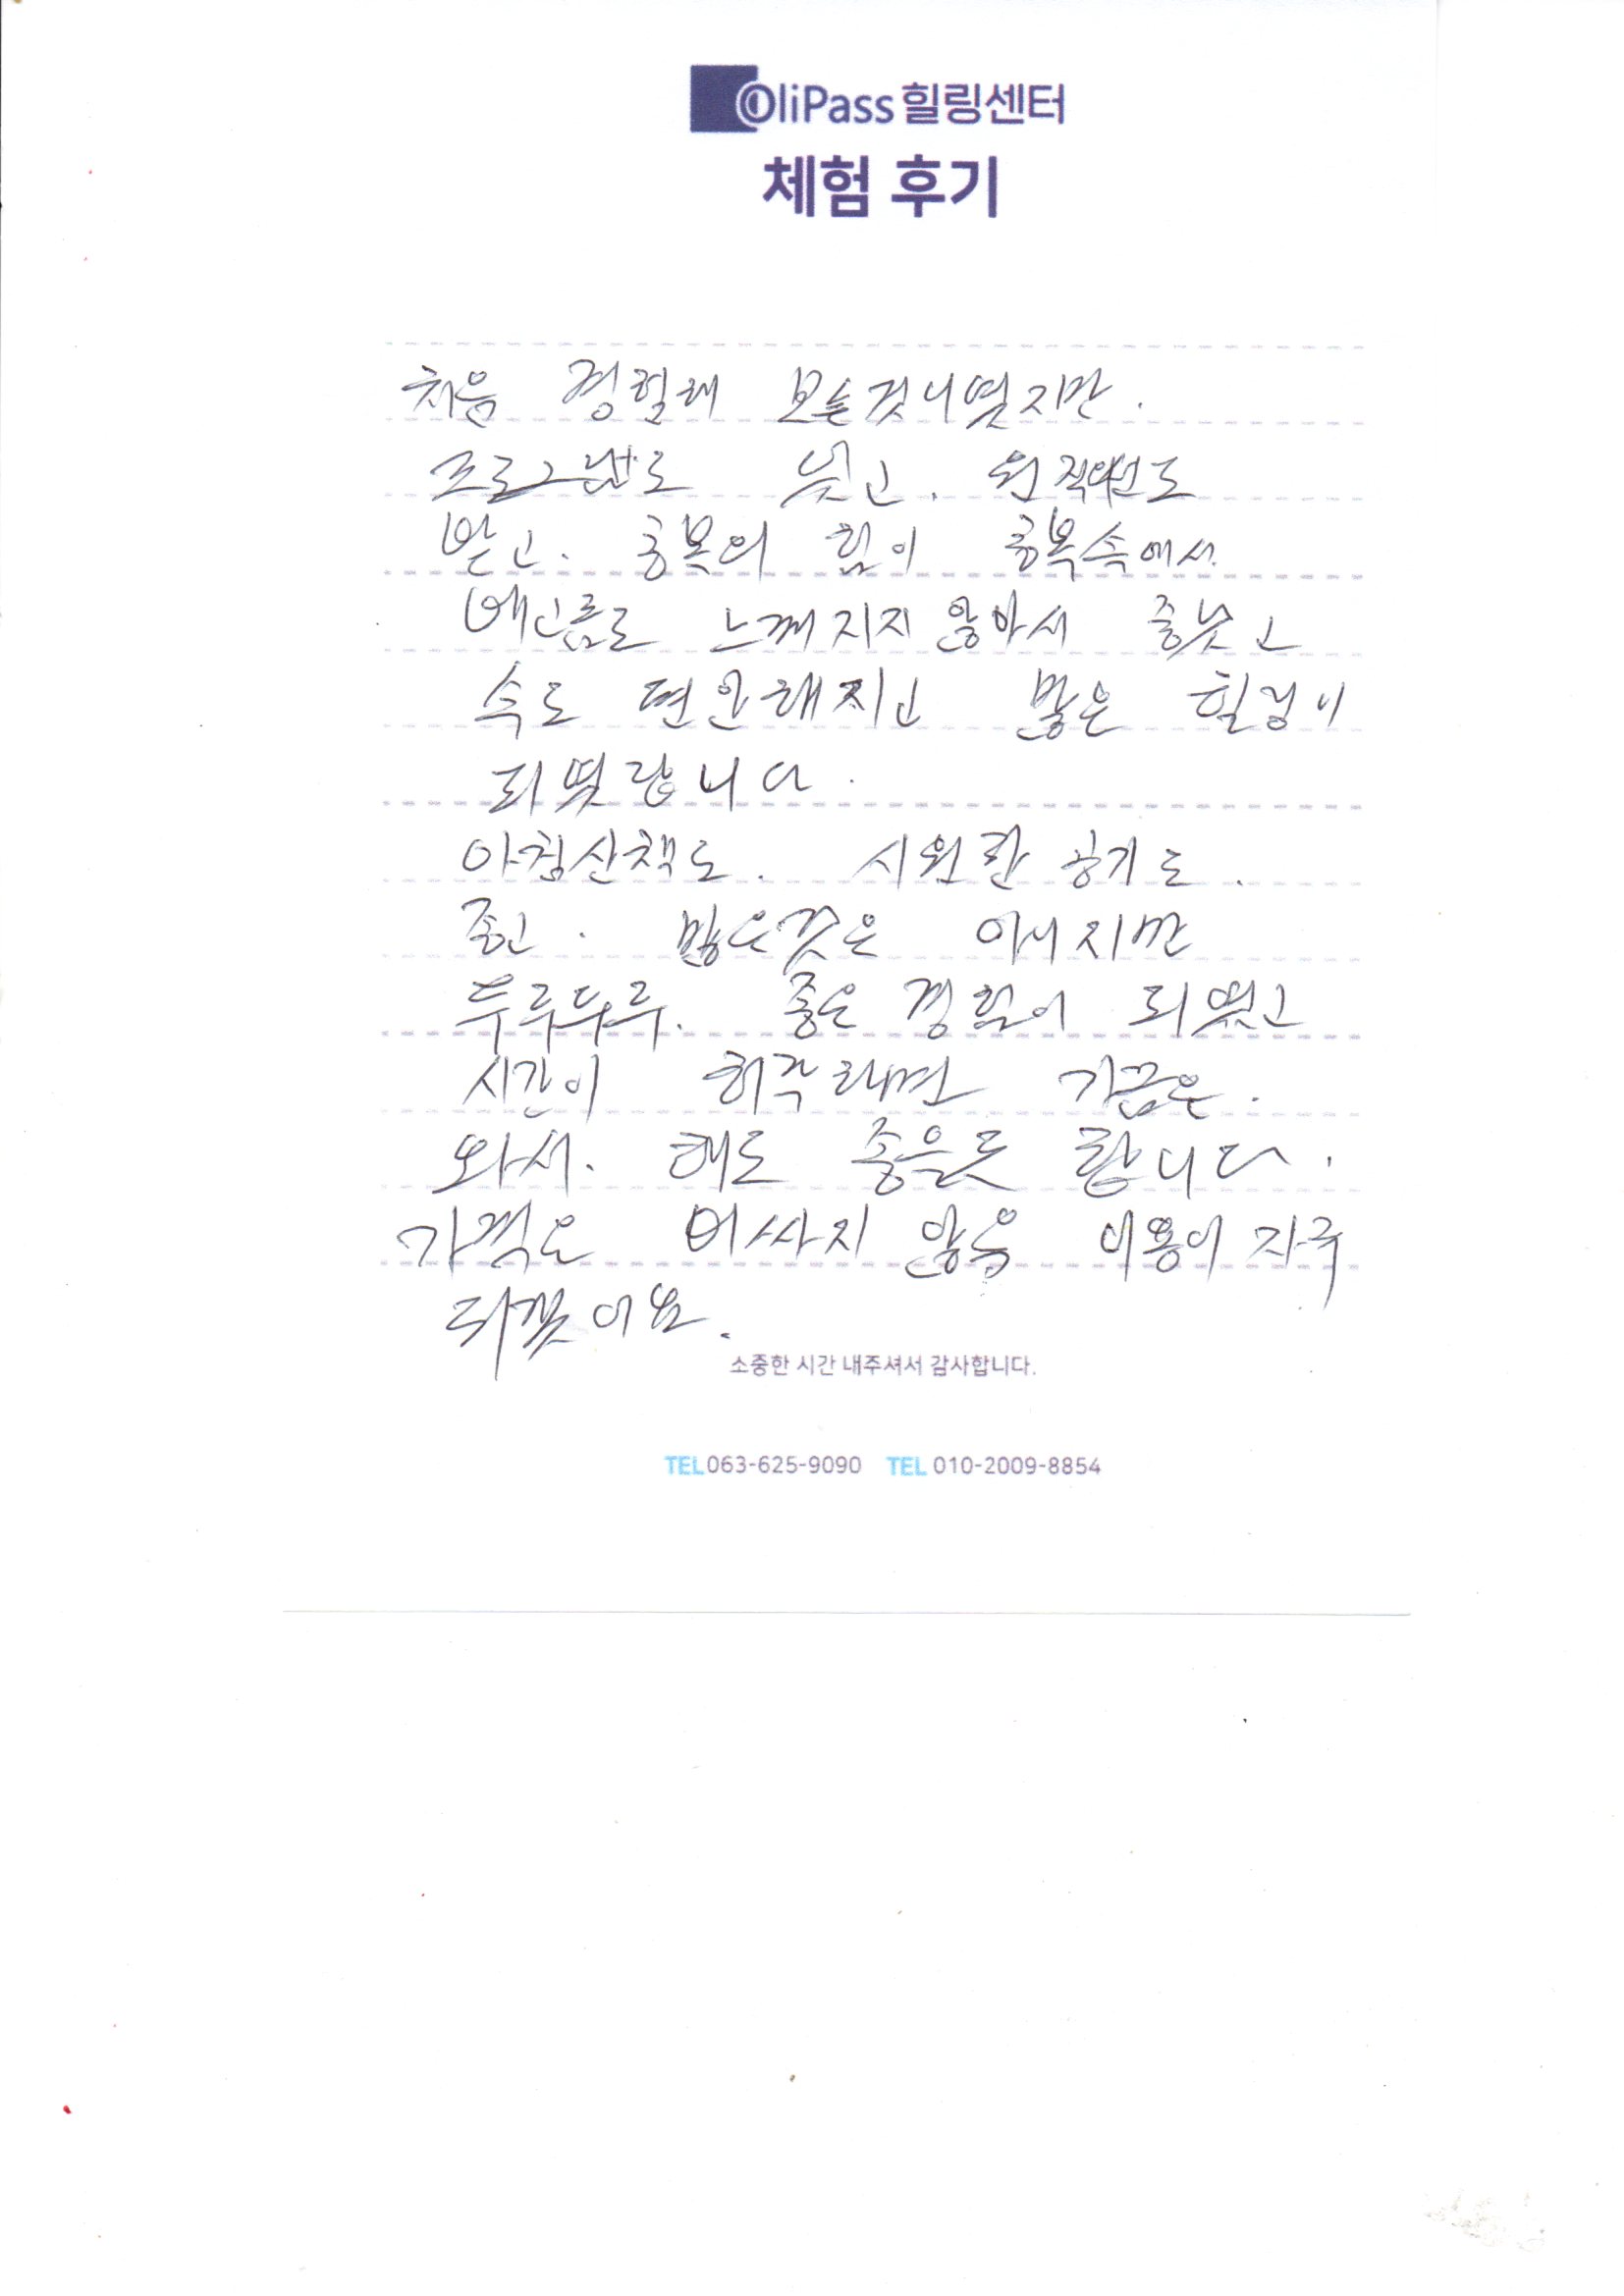 OliPass 힐링센터
체험 후기
처음 경험해 보는것이였지만.
프로그램도
받고. 힘이
배고픔도 느껴지지 않아서 좋났고
속도 편안해지고 많은 힐링이
되였답니다.
아침산책도. 시원한 공기도.
좋고. 많은것은 아니지만
두루두루. 좋은 경험이 되였고
시간이 허락하면 가끔은.
와서. 해도 좋은듯 합니다.
가격도 비싸지 않음 이용이 자주
되겠어요.
소중한 시간 내주셔서 감사합니다.
TEL 063-625-9090 TEL 010-2009-8854